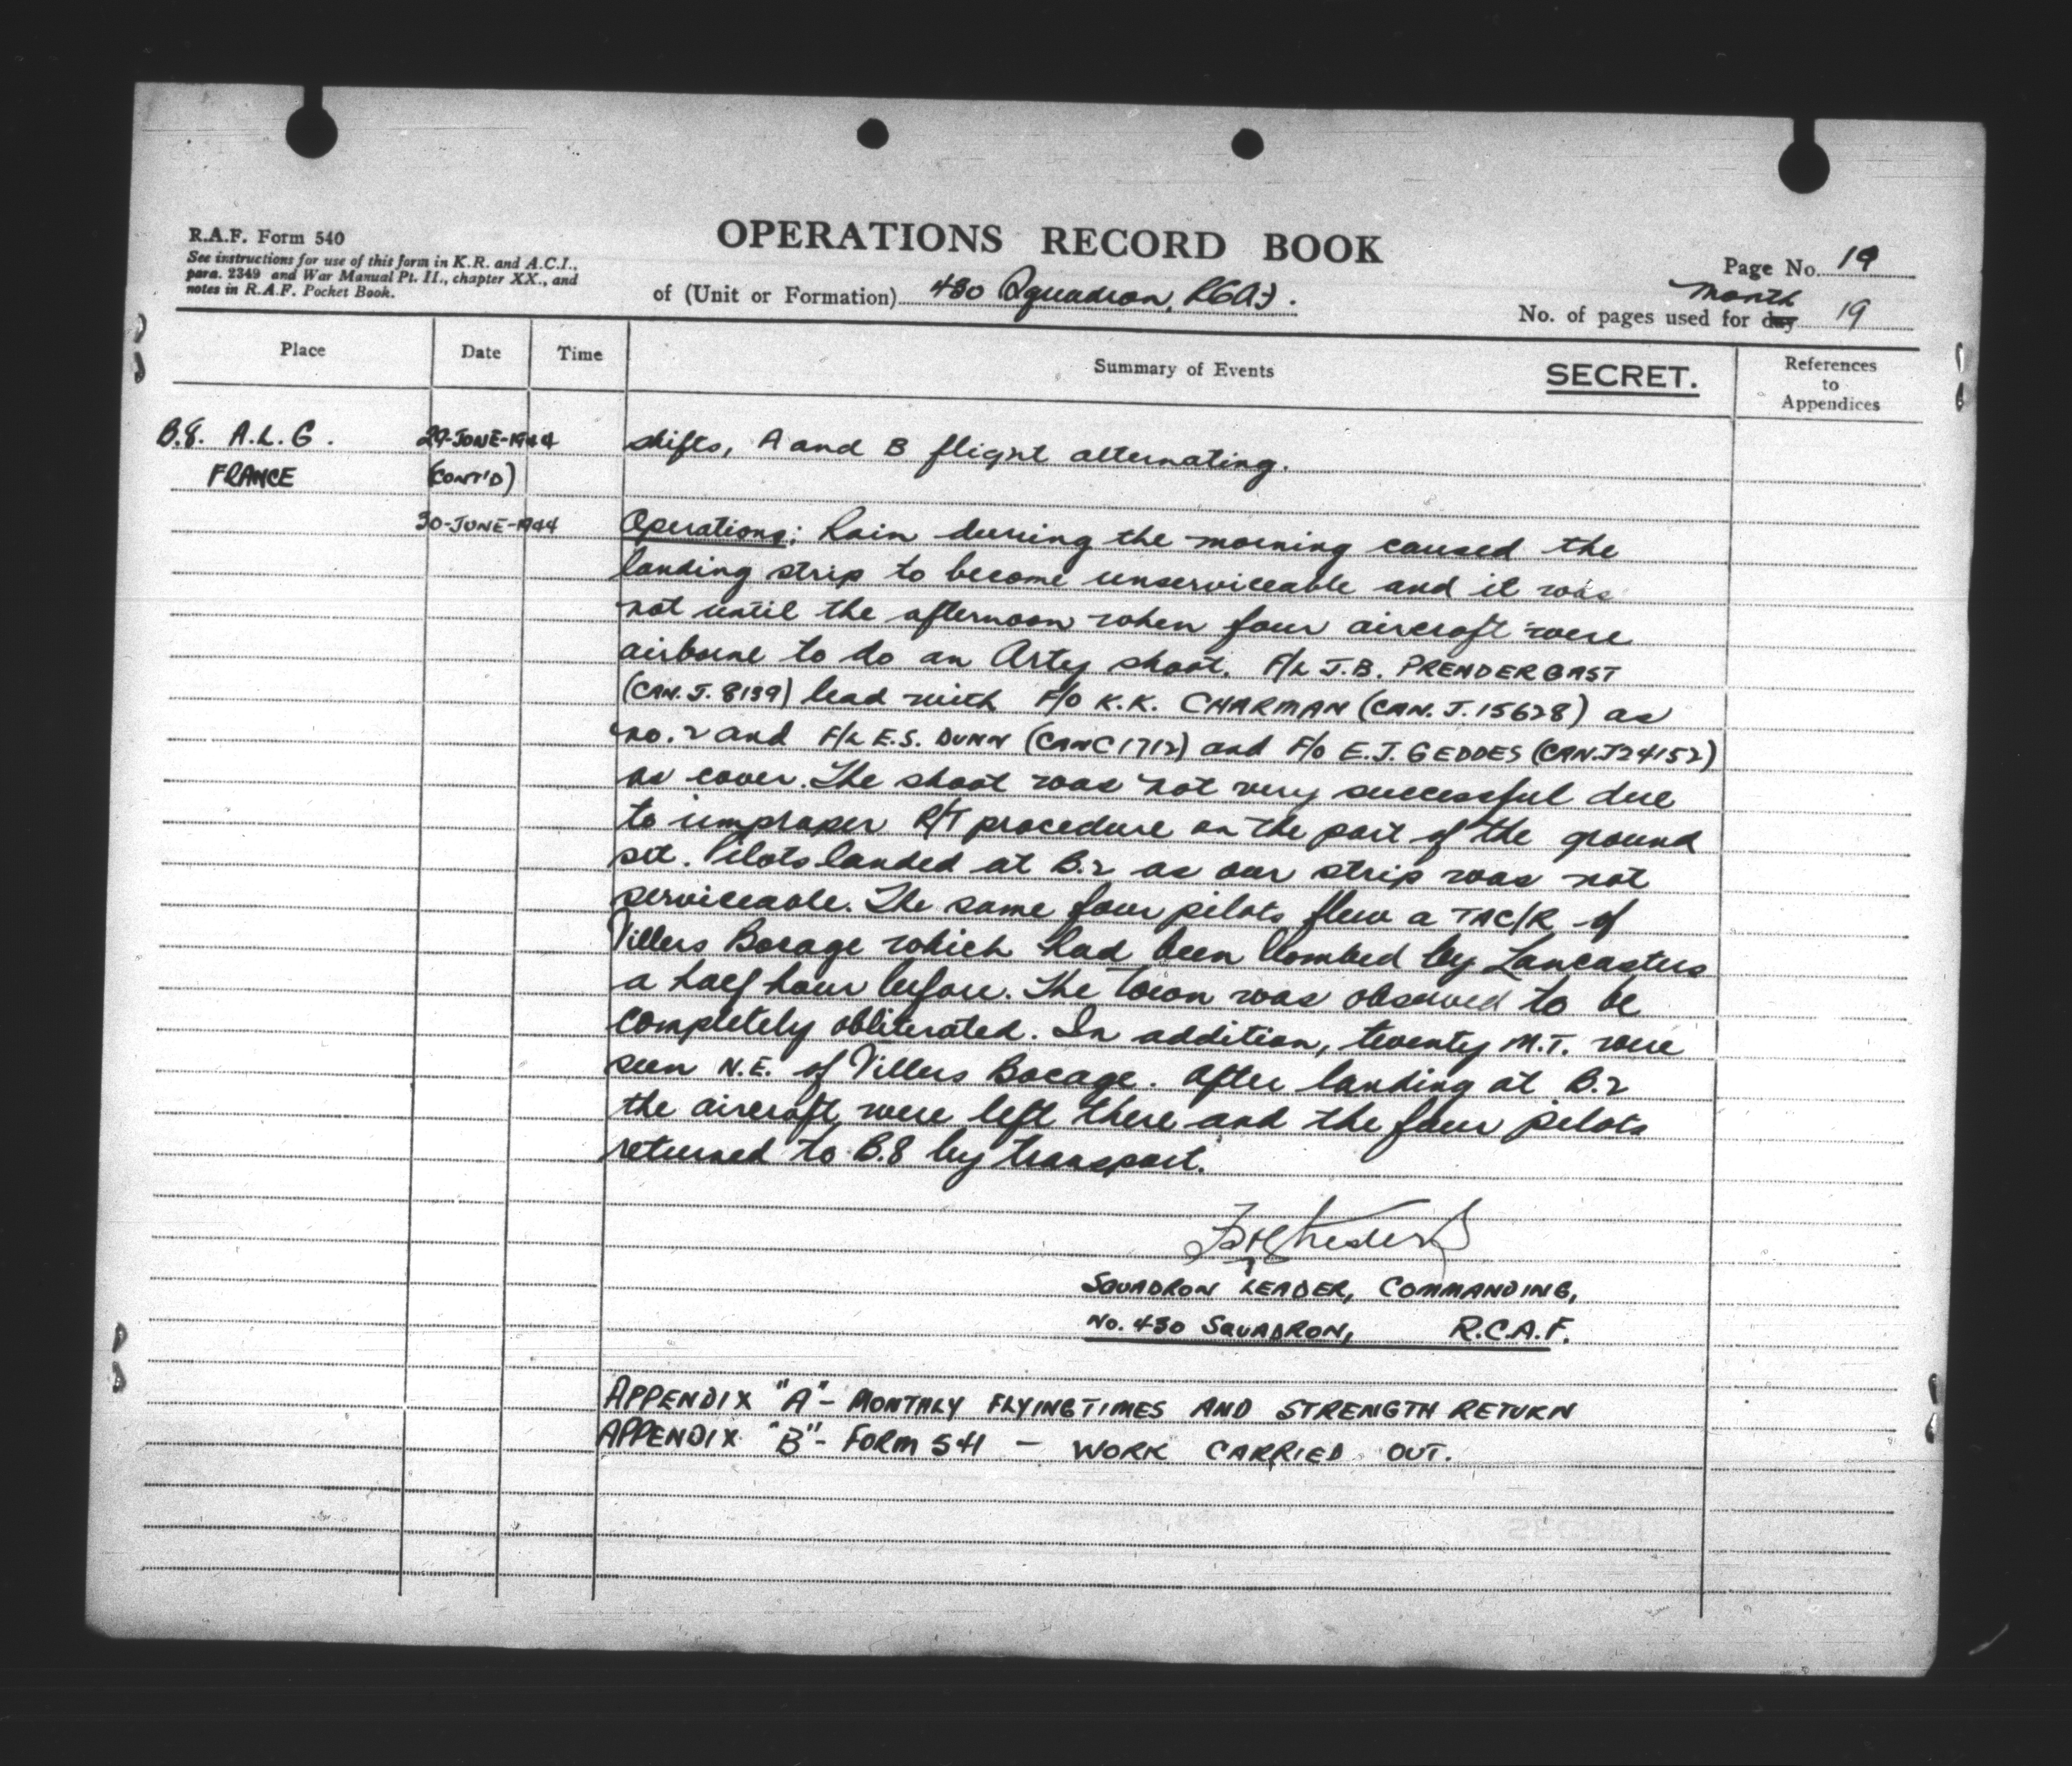 R.A.F. Form 540
See instructions for use of this form in K.R. and A.C.I.,
para. 2349 and War Manual Pt. II., chapter XX., and
notes in R.A.F. Pocket Book.
OPERATIONS RECORD BOOK
of (Unit or Formation) 430 Squadron, RCAF.
Page No. 19
month
No. of pages used for day 19
Place
Date
Time
Summary of Events
SECRET.
References
to
Appendices
B.8. A.L.G. 29-JUNE-1944 shifts, A and B flight alternating.
FRANCE (CONT'D)
30-JUNE-1944 Operations: Rain during the morning caused the
landing strip to become unserviceable and it was
not until the afternoon when four aircraft were
airborne to do an Arty shoot. F/L J.B. PRENDERGAST
(CAN. J. 8139) lead with F/O K.K. CHARMAN (CAN. J. 15628) as
no. 2 and F/L E.S. DUNN (CAN C1712) and F/O E.J. GEDDES (CAN. J24152)
as cover. The shoot was not very successful due
to improper R/T procedure on the part of the ground
set. Pilots landed at B.2 as our strip was not
serviceable. The same four pilots flew a TAC/R of
Villers Bocage which had been bombed by Lancasters
a half hour before. The town was observed to be
completely obliterated. In addition, twenty M.T. were
seen N.E. of Villers Bocage. After landing at B.2
the aircraft were left there and the four pilots
returned to B.8 by transport.
SQUADRON LEADER, COMMANDING,
No. 430 SQUADRON, R.C.A.F.
APPENDIX "A" - MONTHLY FLYING TIMES AND STRENGTH RETURN
APPENDIX "B" - FORM 541 - WORK CARRIED OUT.